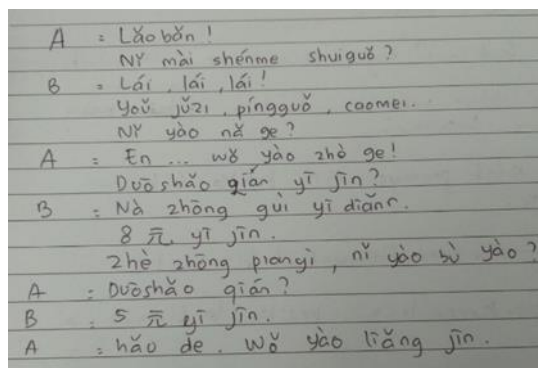 A : Lǎobǎn !
Nǐ mài shénme shuǐguǒ ?
B : Lái , lái , lái !
Yǒu júzi , píngguǒ , cǎoméi .
Nǐ yào nǎ ge ?
A : En ... wǒ yào zhè ge !
Duōshǎo qián yī jīn ?
B : Nà zhǒng guì yī diǎnr .
8 元 yī jīn .
zhè zhǒng piányi , nǐ yào bù yào ?
A : Duōshǎo qián ?
B : 5 元 yī jīn .
A : hǎo de . Wǒ yào liǎng jīn .